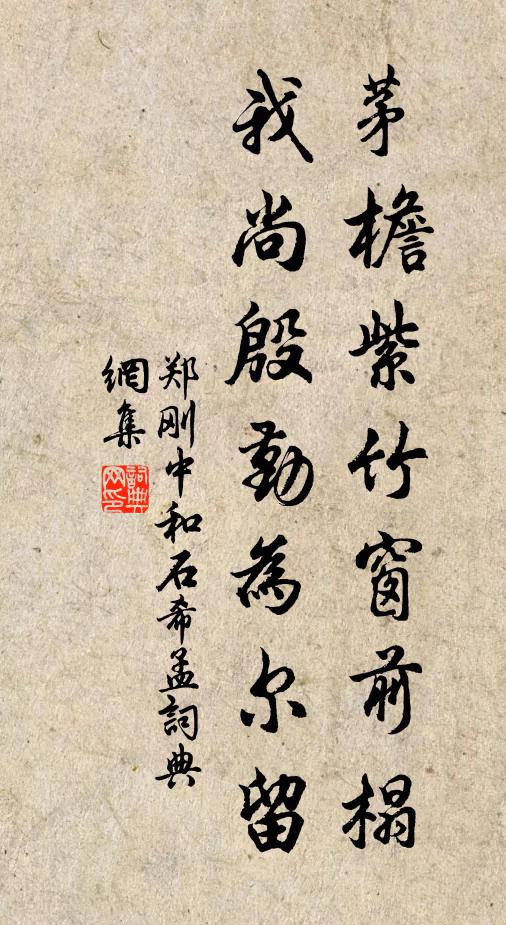 茅檐紫竹窗前榻
我尚殷勤為尔留
郑刚中和石希孟詞典
網集
詞典网印